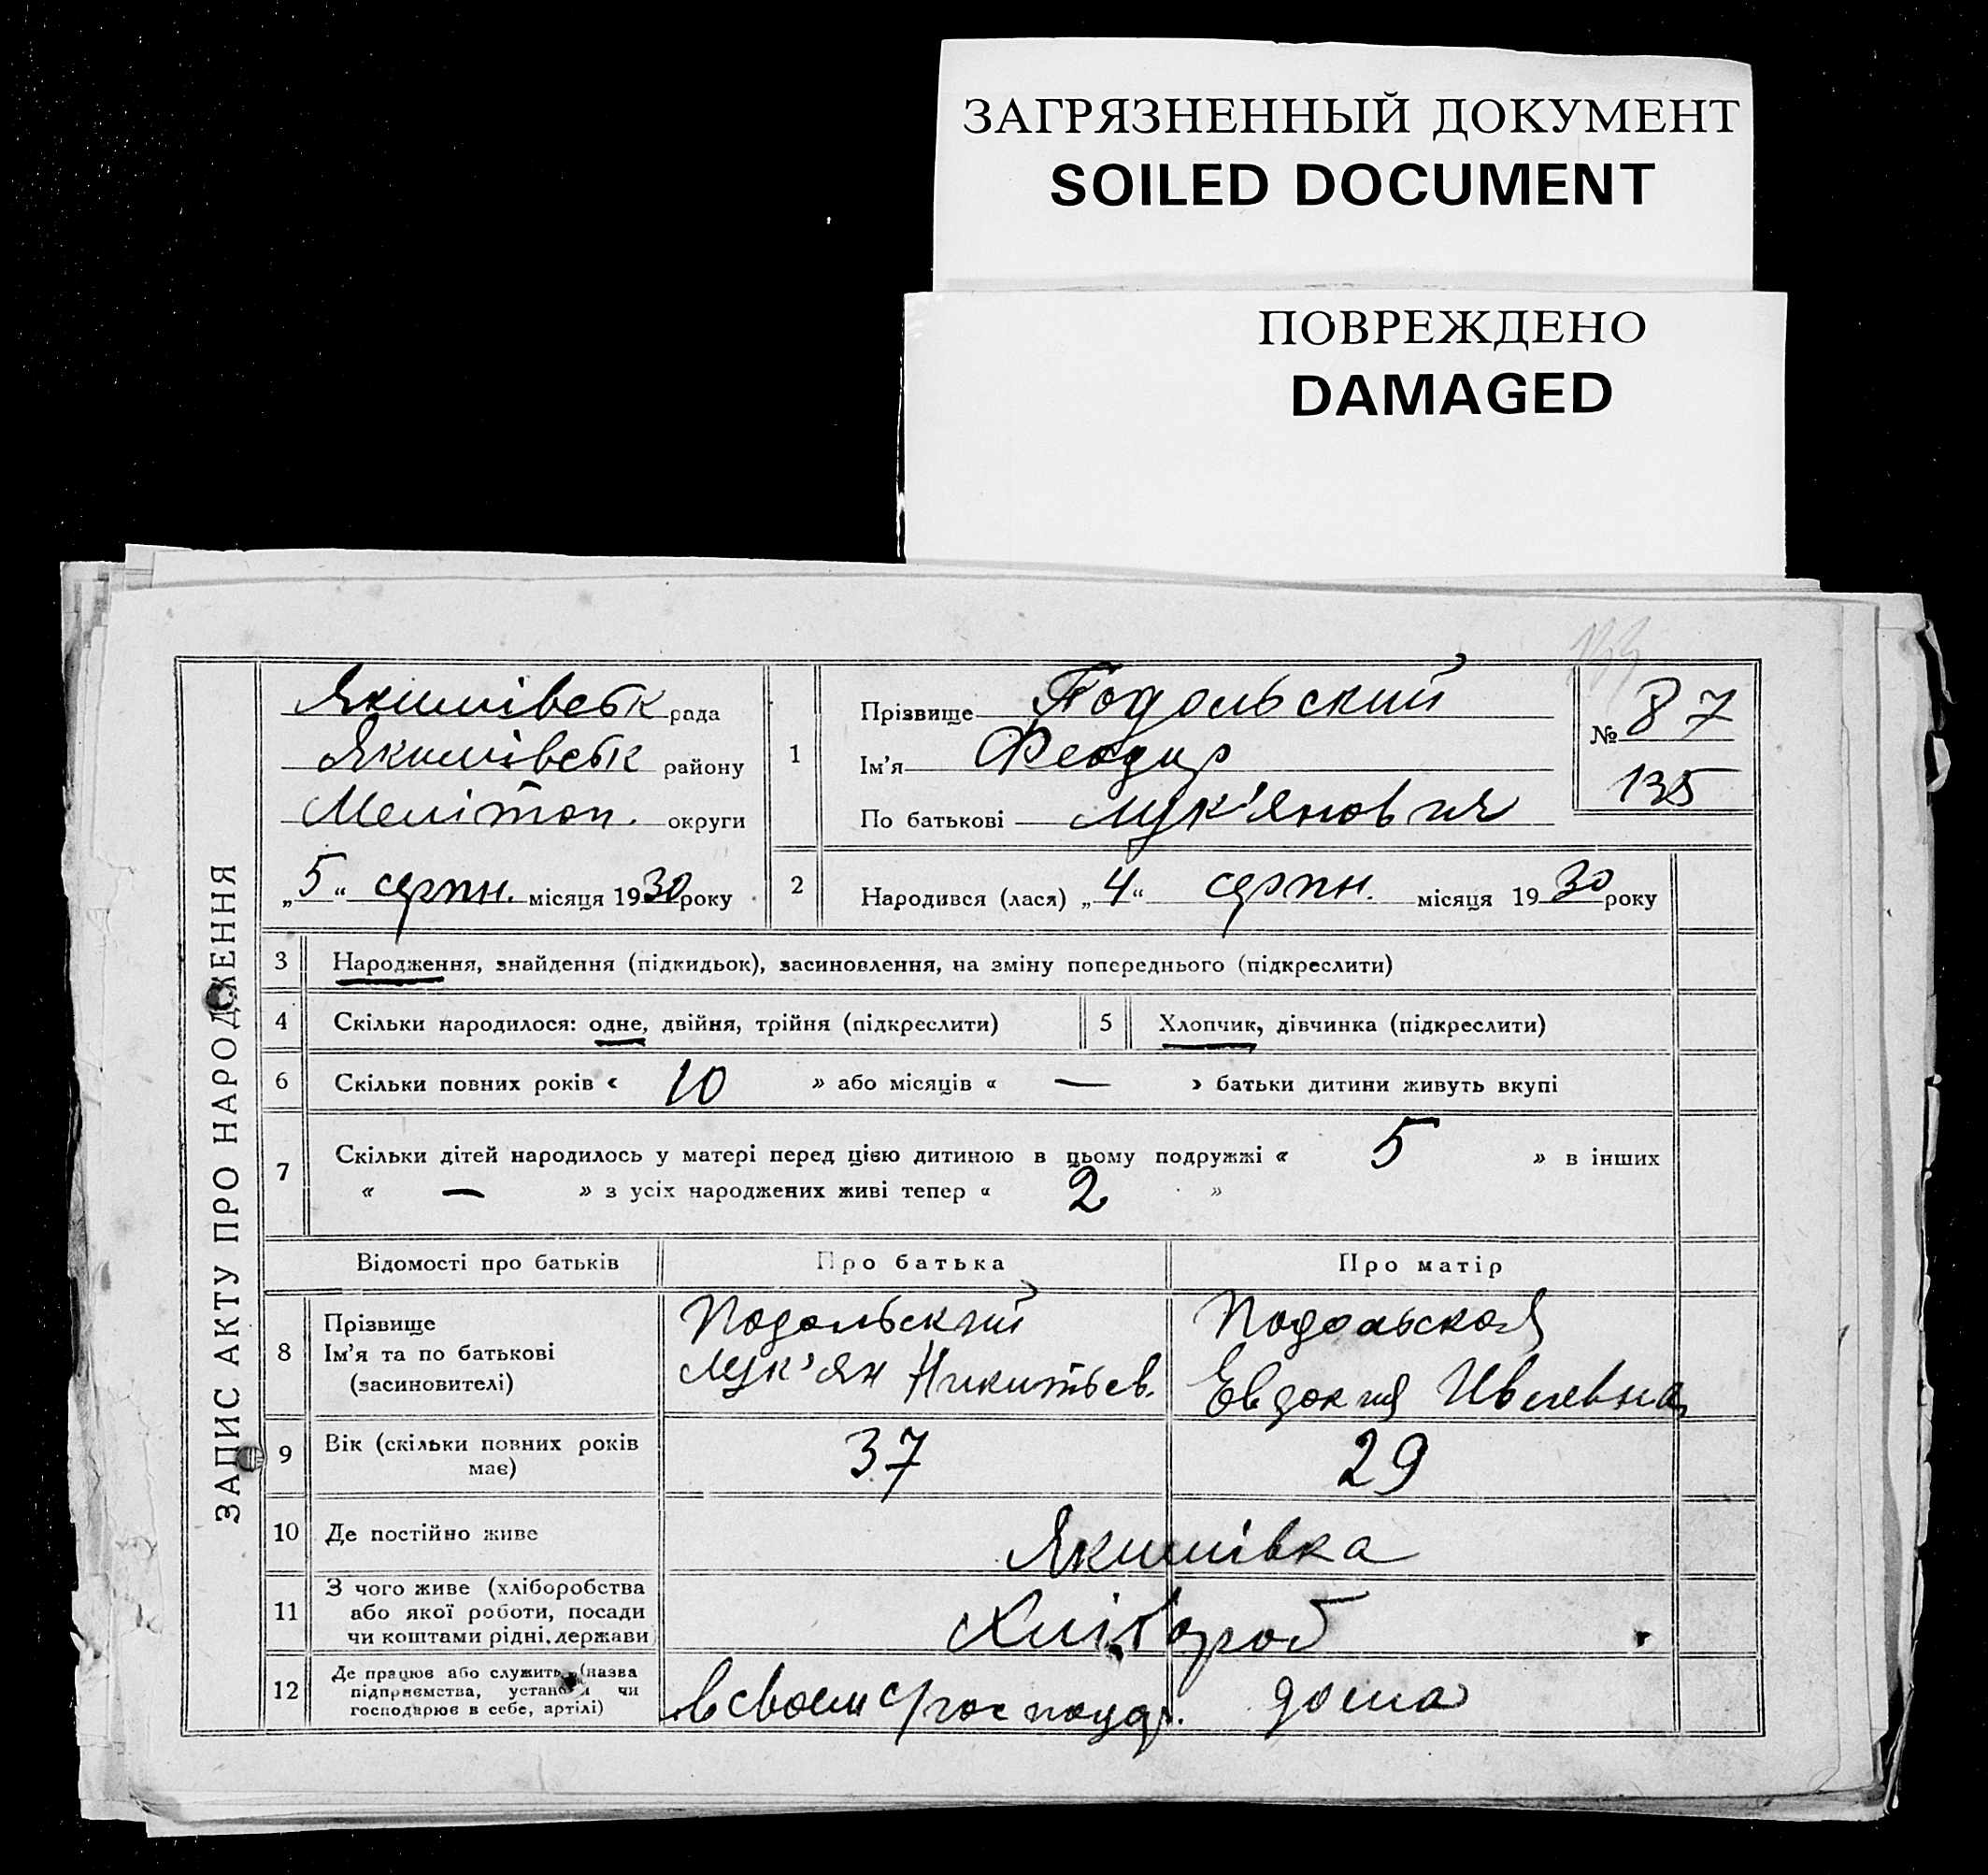 ЗАГРЯЗНЕННЫЙ ДОКУМЕНТ
SOILED DOCUMENT
ПОВРЕЖДЕНО
DAMAGED
ЗАПИС АКТУ ПРО НАРОДЖЕННЯ
Якимівськ рада
Якимівськ району
Мелітоп. округи
„5“ серпн. місяця 1930 року
1
Прізвище Подольский
Ім'я Феодир
По батькові Лук'янович
№ 87
135
2
Народився (лася) „4“ серпн. місяця 1930 року
3 Народження, знайдення (підкидьок), засиновлення, на зміну попереднього (підкреслити)
4 Скільки народилося: одне, двійня, трійня (підкреслити) 5 Хлопчик, дівчинка (підкреслити)
6 Скільки повних років « 10 » або місяців « — » батьки дитини живуть вкупі
7 Скільки дітей народилось у матері перед цією дитиною в цьому подружжі « 5 » в інших
« — » з усіх народжених живі тепер « 2 »
Відомості про батьків Про батька Про матір
8 Прізвище
Ім'я та по батькові
(засиновителі)
Подольский
Лук'ян Никитьев.
Подольская
Евдокия Ивлевна
9 Вік (скільки повних років
має)
37 29
10 Де постійно живе Якимівка
11 З чого живе (хліборобства
або якої роботи, посади
чи коштами рідні, держави)
Хлібороб
12 Де працює або служить (назва
підприємства, установи чи
господарює в себе, артілі)
в своем госпоуд. дома